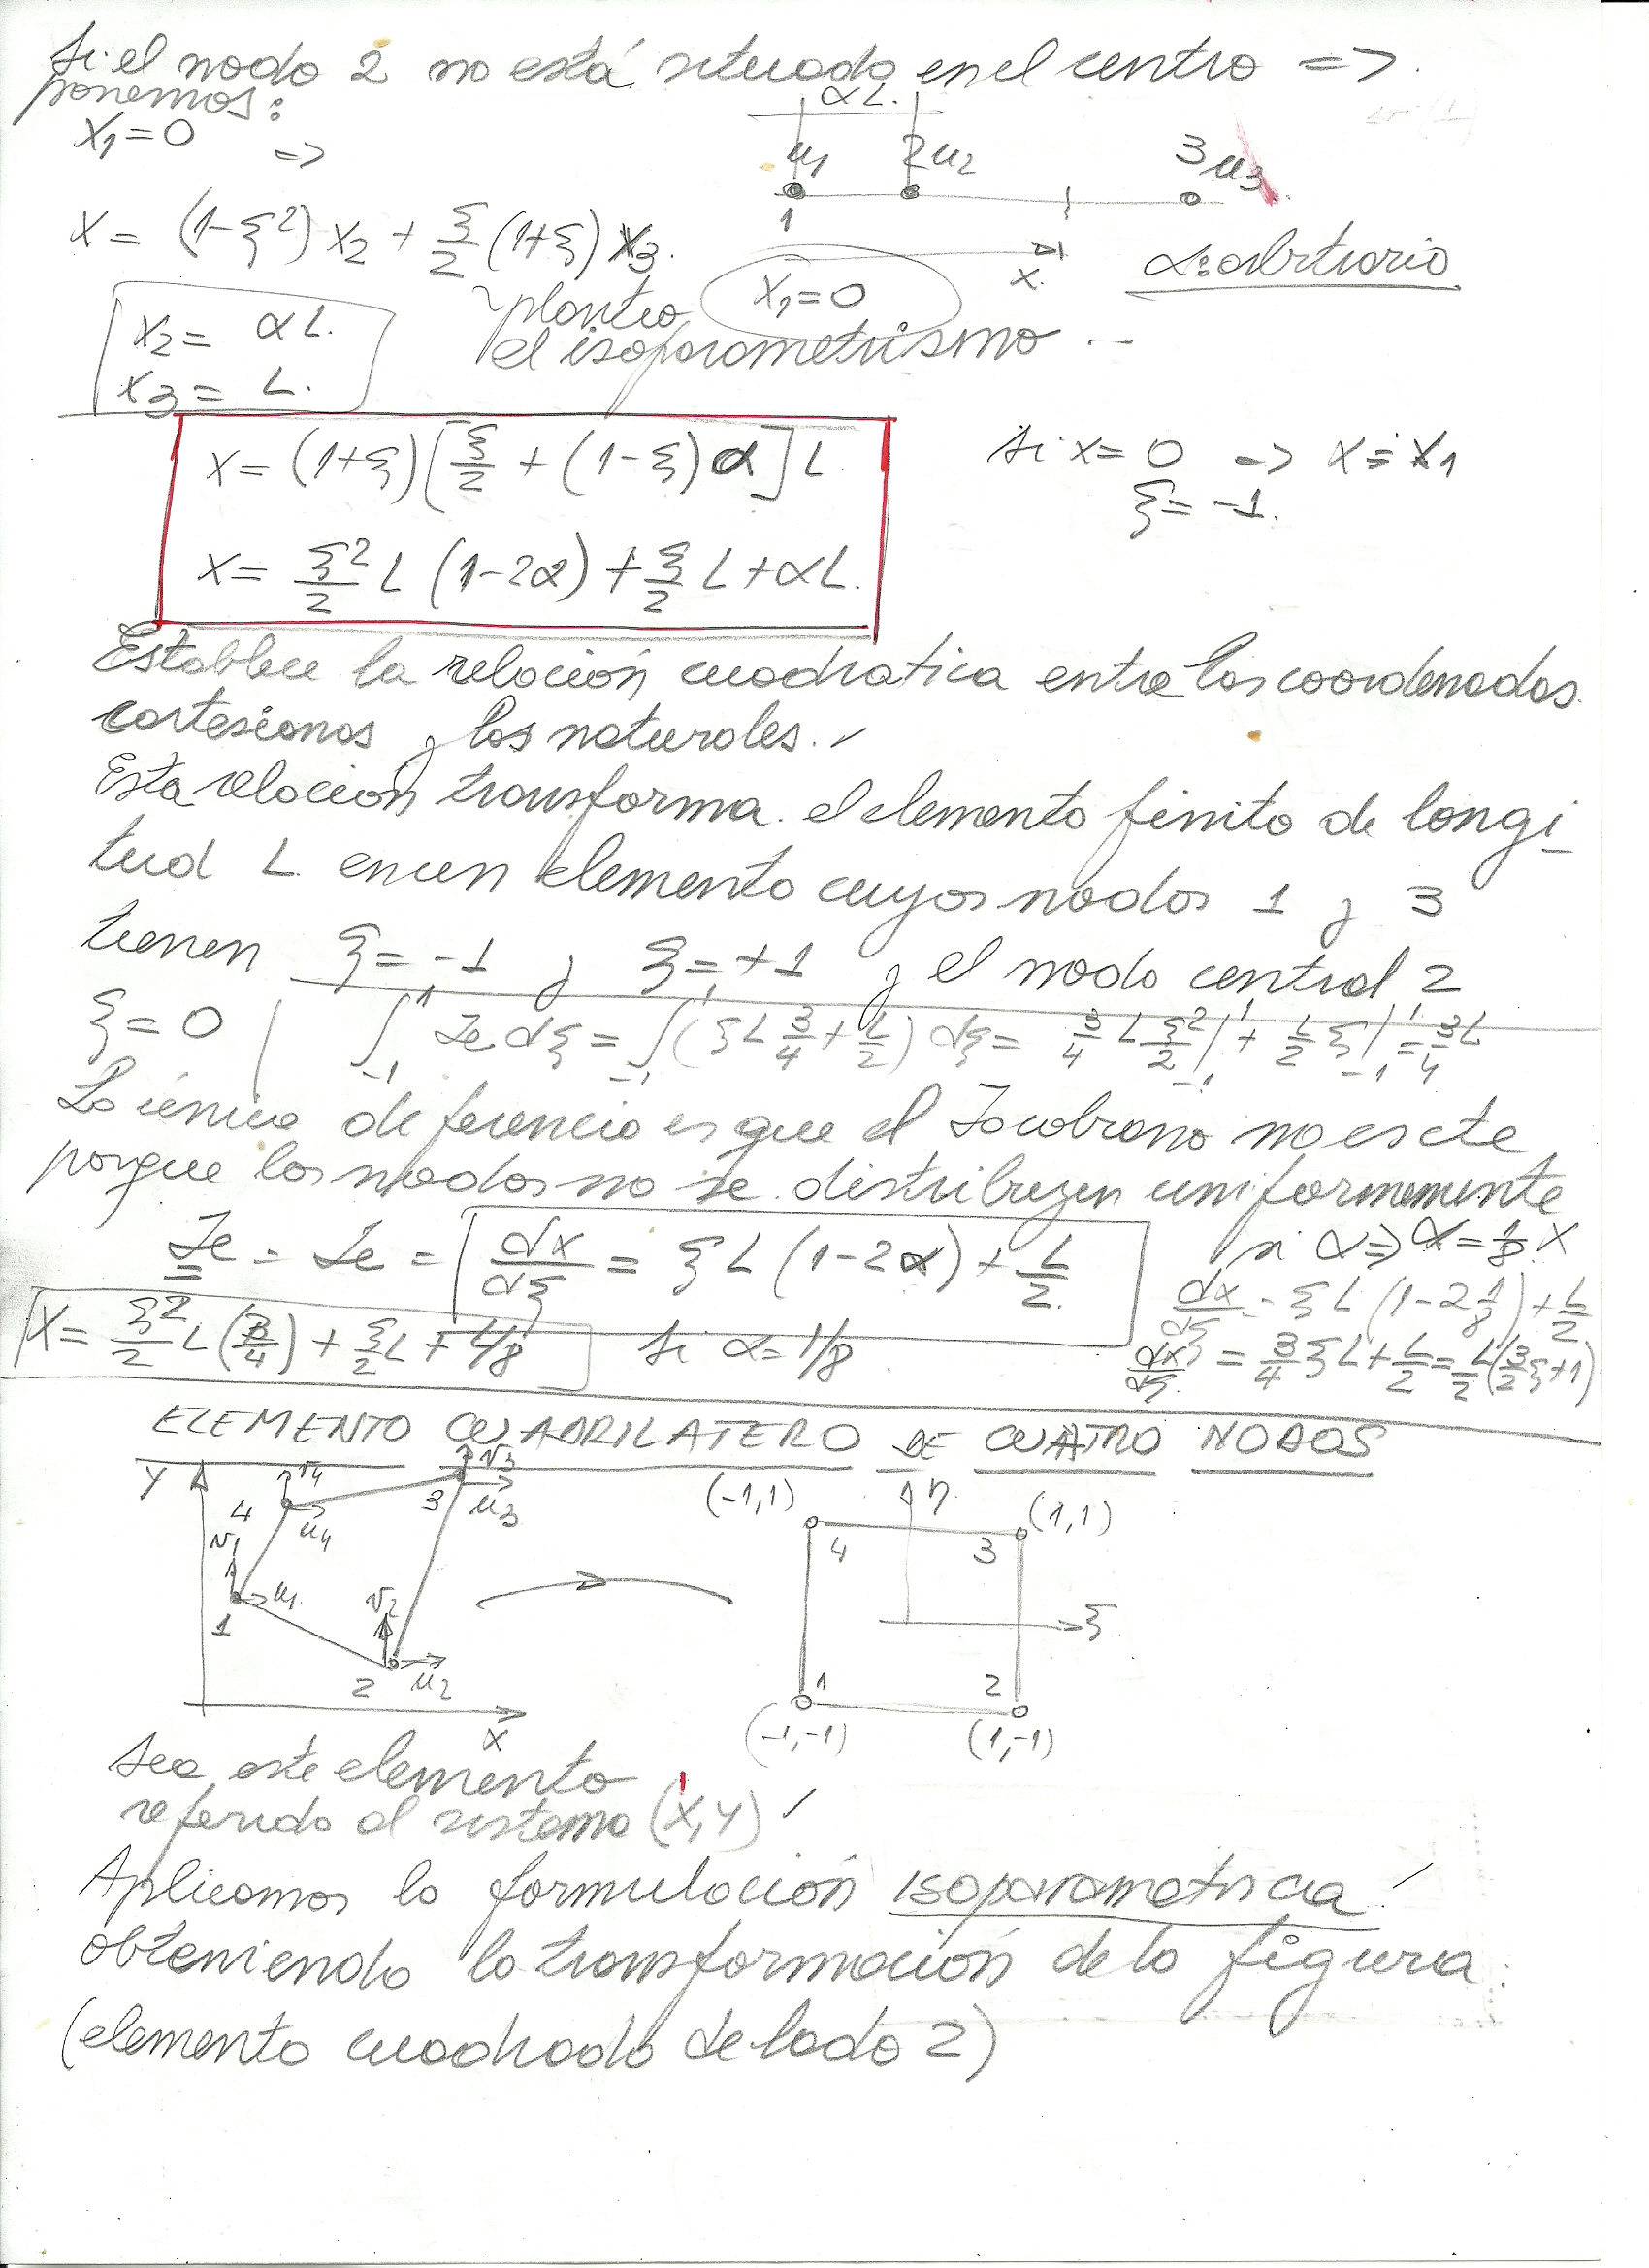 Si el nodo 2 no está situado en el centro =>
ponemos:
x₁=0 =>
αL.
u₁ 2 u₂ 3 u₃
1
x = (1-ξ²)x₂ + ξ/2 (1+ξ) x₃.
x.
α: arbitrario
x₂ = αL.
x₃ = L.
planteo x₁=0
el isoparametrismo --
x = (1+ξ)[ξ/2 + (1-ξ)α]L
si x = 0 => x = x₁
ξ = -1.
x = ξ²/2 L (1-2α) + ξ/2 L + αL.
Establece la relación cuadratica entre las coordenadas
cartesianas y las naturales.
Esta relación transforma el elemento finito de longi
tud L en un elemento cuyos nodos 1 y 3
tienen ξ = -1 y ξ = +1 y el nodo central 2
ξ = 0 ∫₋₁¹ Je dξ = ∫₋₁¹ (ξL 3/4 + L/2) dξ = 3/4 L ξ²/2 |₋₁¹ + L/2 ξ |₋₁¹ = 3/4 L
La única diferencia es que el Jacobiano no es cte
porque los nodos no se distribuyen uniformemente
Je = Je = dx/dξ = ξL(1-2α) + L/2.
si α => α = 1/8 x
dx/dξ = ξL (1-2 1/8) + L/2
x = ξ²/2 L (3/4) + ξ/2 L + L/8 si α = 1/8
dx/dξ = 3/4 ξL + L/2 = L/2 (3/2 ξ + 1)
ELEMENTO CUADRILATERO DE CUATRO NODOS
Y v₄ v₃ (-1,1) η (1,1)
4 u₄ 3 u₃ 4 3
v₁
u₁
1 v₂ ξ
2 u₂ 1 2
x (-1,-1) (1,-1)
Sea este elemento
referido al sistema (x,y)
Aplicamos la formulación isoparametrica
obteniendo la transformación de la figura:
(elemento cuadrado de lado 2)